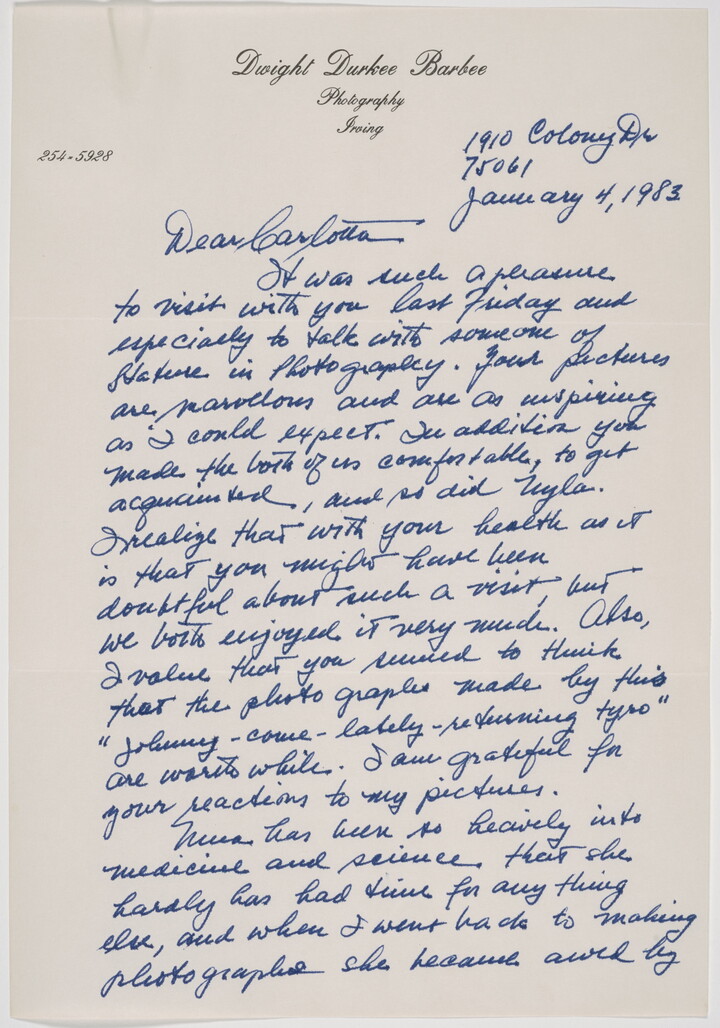 Dwight Durkee Barbee
Photography
Irving
254-5928
1910 Colony Dr
75061
January 4, 1983
Dear Carlotta
It was such a pleasure
to visit with you last Friday and
especially to talk with someone of
stature in photography. Your pictures
are marvellous and are as inspiring
as I could expect. In addition you
made the both of us comfortable, to get
acquainted, and so did Nyla.
I realize that with your health as it
is that you might have been
doubtful about such a visit, but
we both enjoyed it very much. Also,
I value that you seemed to think
that the photographs made by this
"Johnny-come-lately-returning tyro"
are worth while. I am grateful for
your reactions to my pictures.
has been so heavily into
medicine and science that she
hardly has had time for any thing
else, and when I went back to making
photographs she became awed by